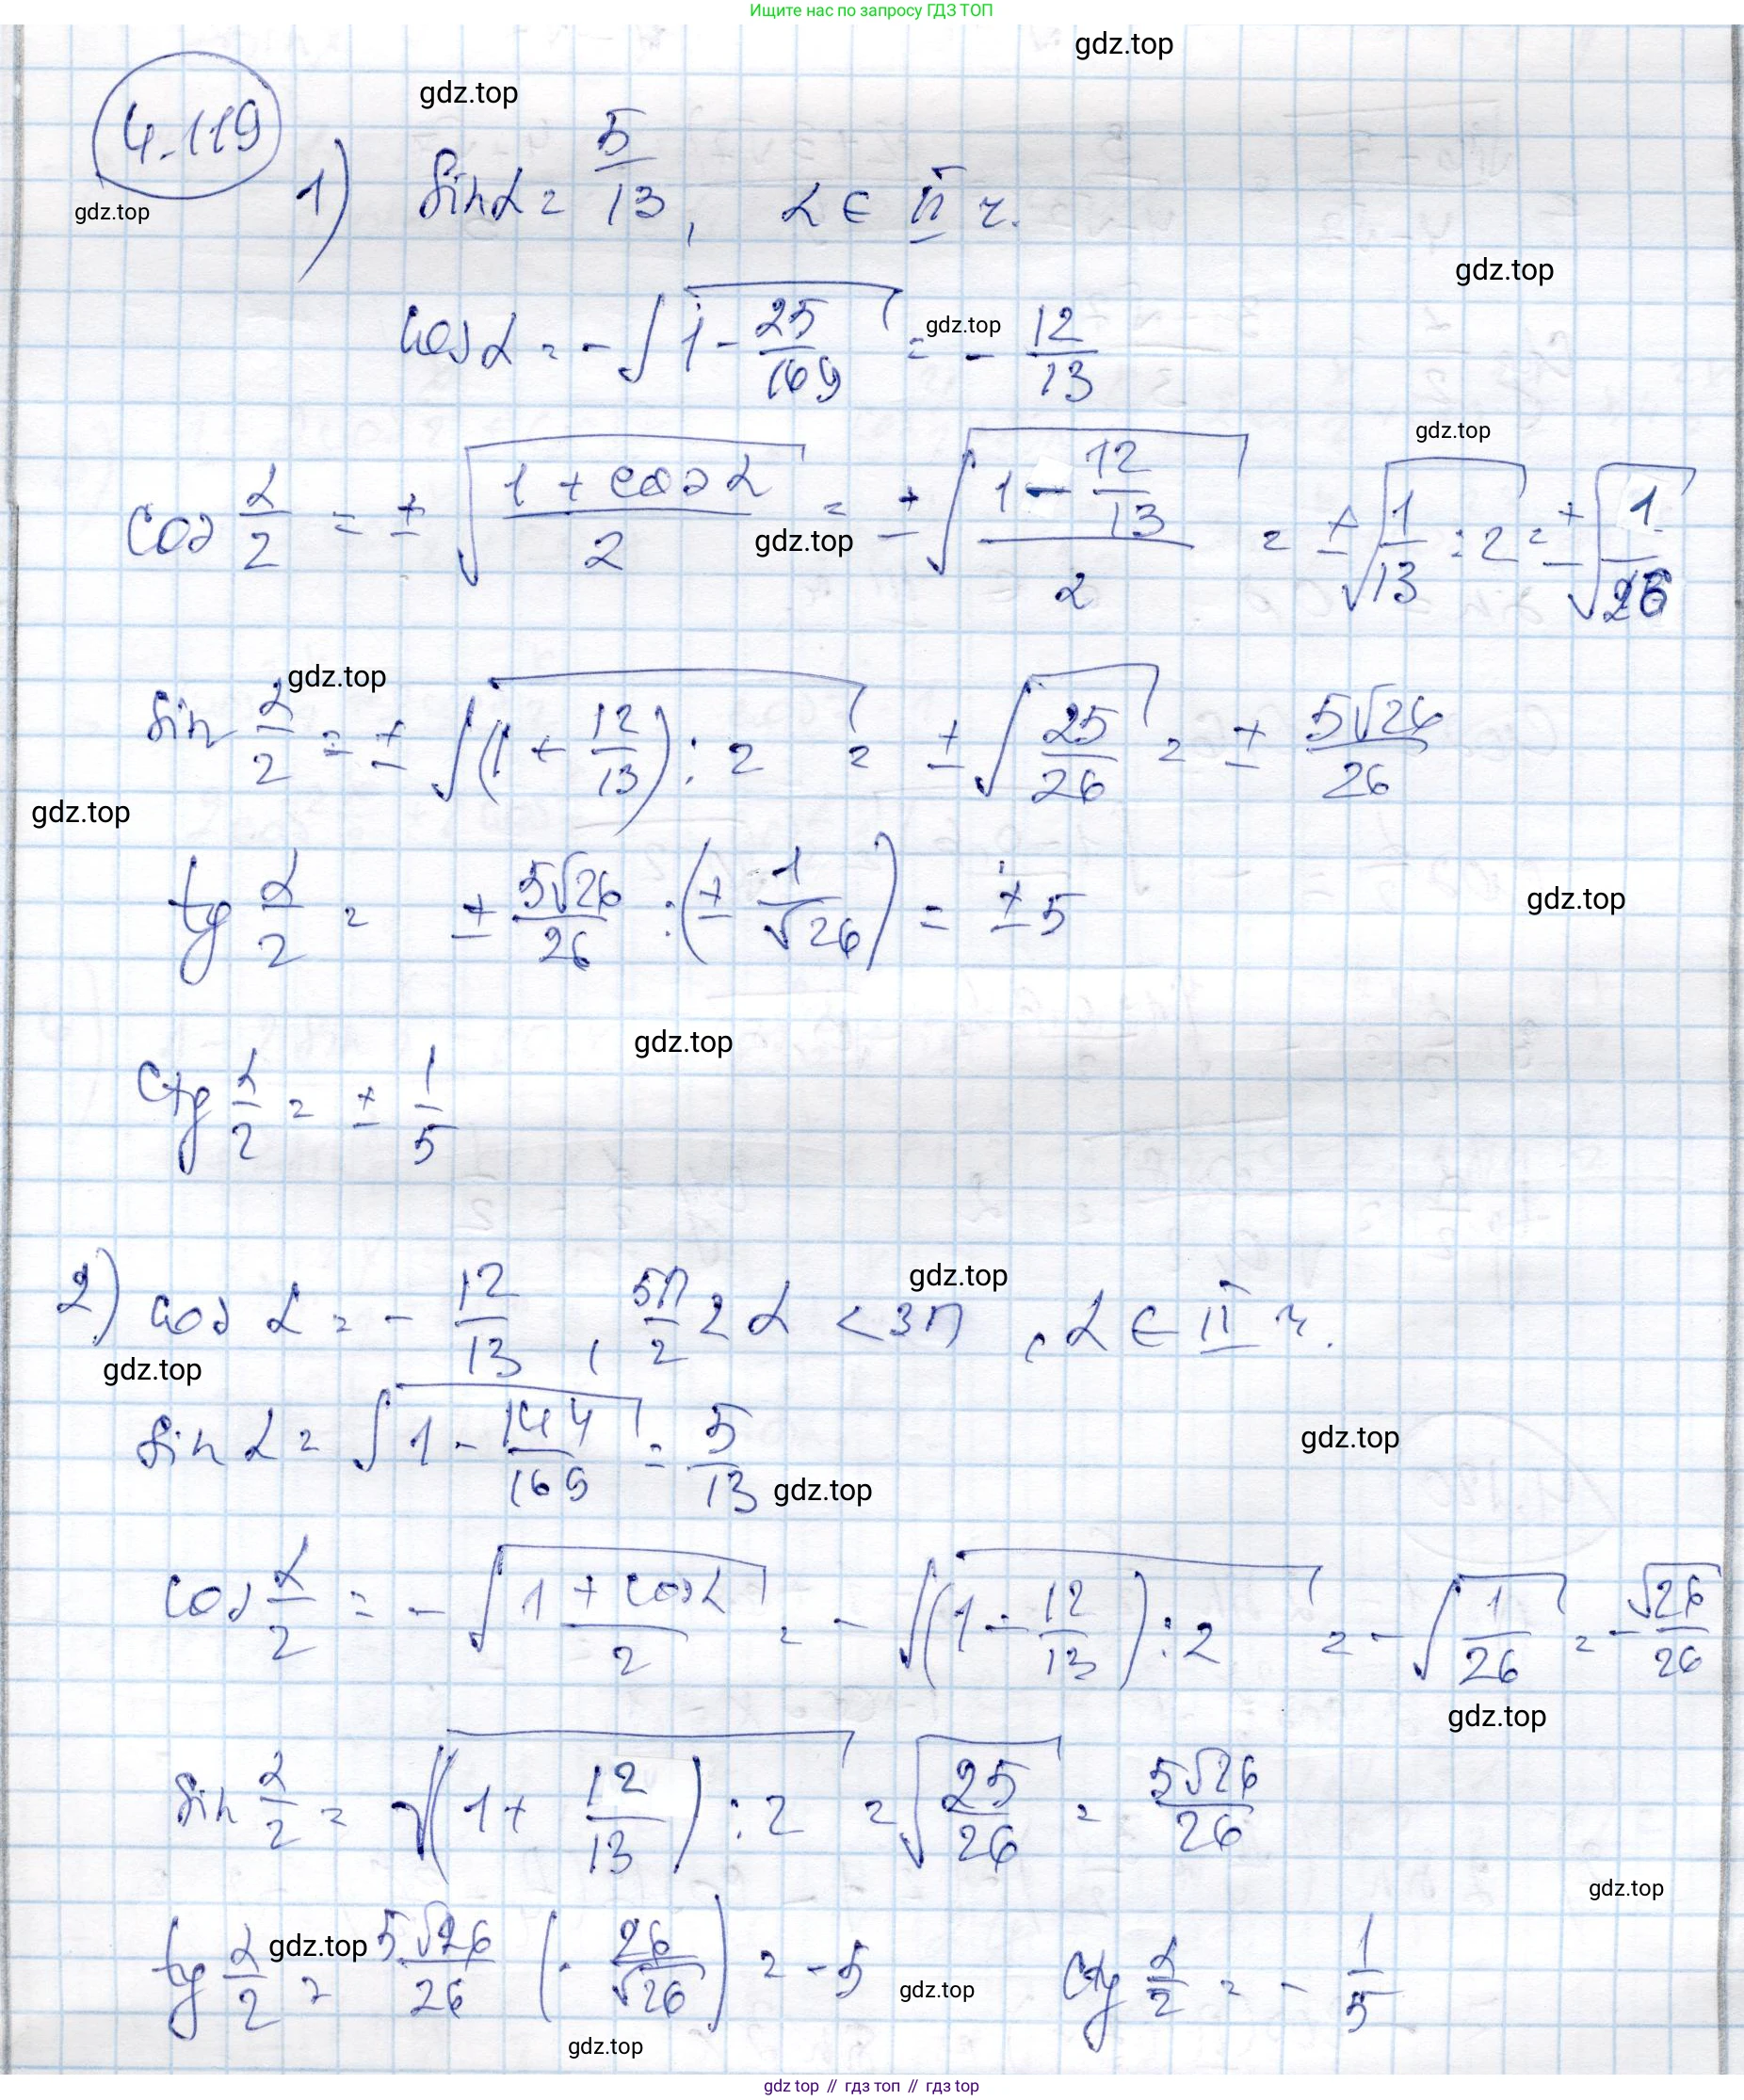 Ищите нас по запросу ГДЗ ТОП
gdz.top
gdz.top
4.119
gdz.top
1) sin α = 5/13, α ∈ II ч.
gdz.top
cos α = -√(1 - 25/169) = - 12/13
gdz.top
gdz.top
cos α/2 = ± √((1 + cos α)/2) = ± √((1 - 12/13)/2) = ± √(1/13 : 2) = ± √(1/26)
gdz.top
gdz.top
sin α/2 = ± √((1 + 12/13) : 2) = ± √(25/26) = ± 5√26/26
gdz.top
tg α/2 = ± 5√26/26 : (± 1/√26) = ± 5
gdz.top
gdz.top
ctg α/2 = ± 1/5
gdz.top
2) cos α = - 12/13, 5π/2 < α < 3π, α ∈ II ч.
gdz.top
sin α = √(1 - 144/169) = 5/13
gdz.top
gdz.top
cos α/2 = - √((1 + cos α)/2) = - √((1 - 12/13) : 2) = - √(1/26) = - √26/26
gdz.top
sin α/2 = √((1 + 12/13) : 2) = √(25/26) = 5√26/26
gdz.top
tg α/2 = 5√26/26 (- 26/√26) = -5 ctg α/2 = - 1/5
gdz.top
gdz.top
gdz.top
gdz top // гдз топ // gdz top